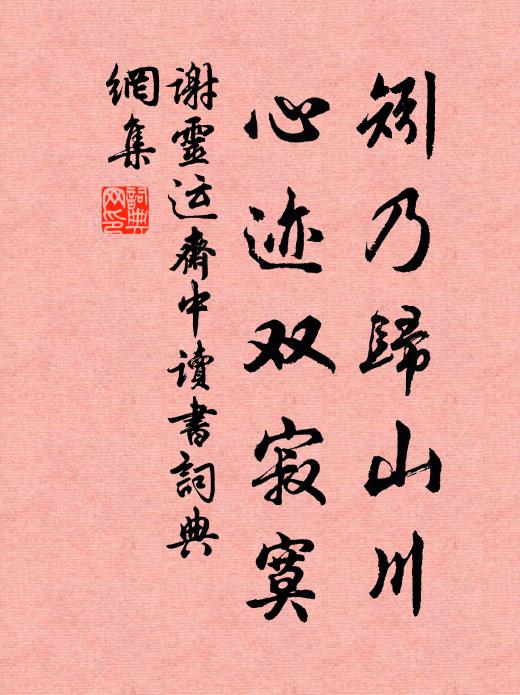 矧乃歸山川
心迹双寂寞
谢靈运斋中讀書詞典
網集
詞典
网印